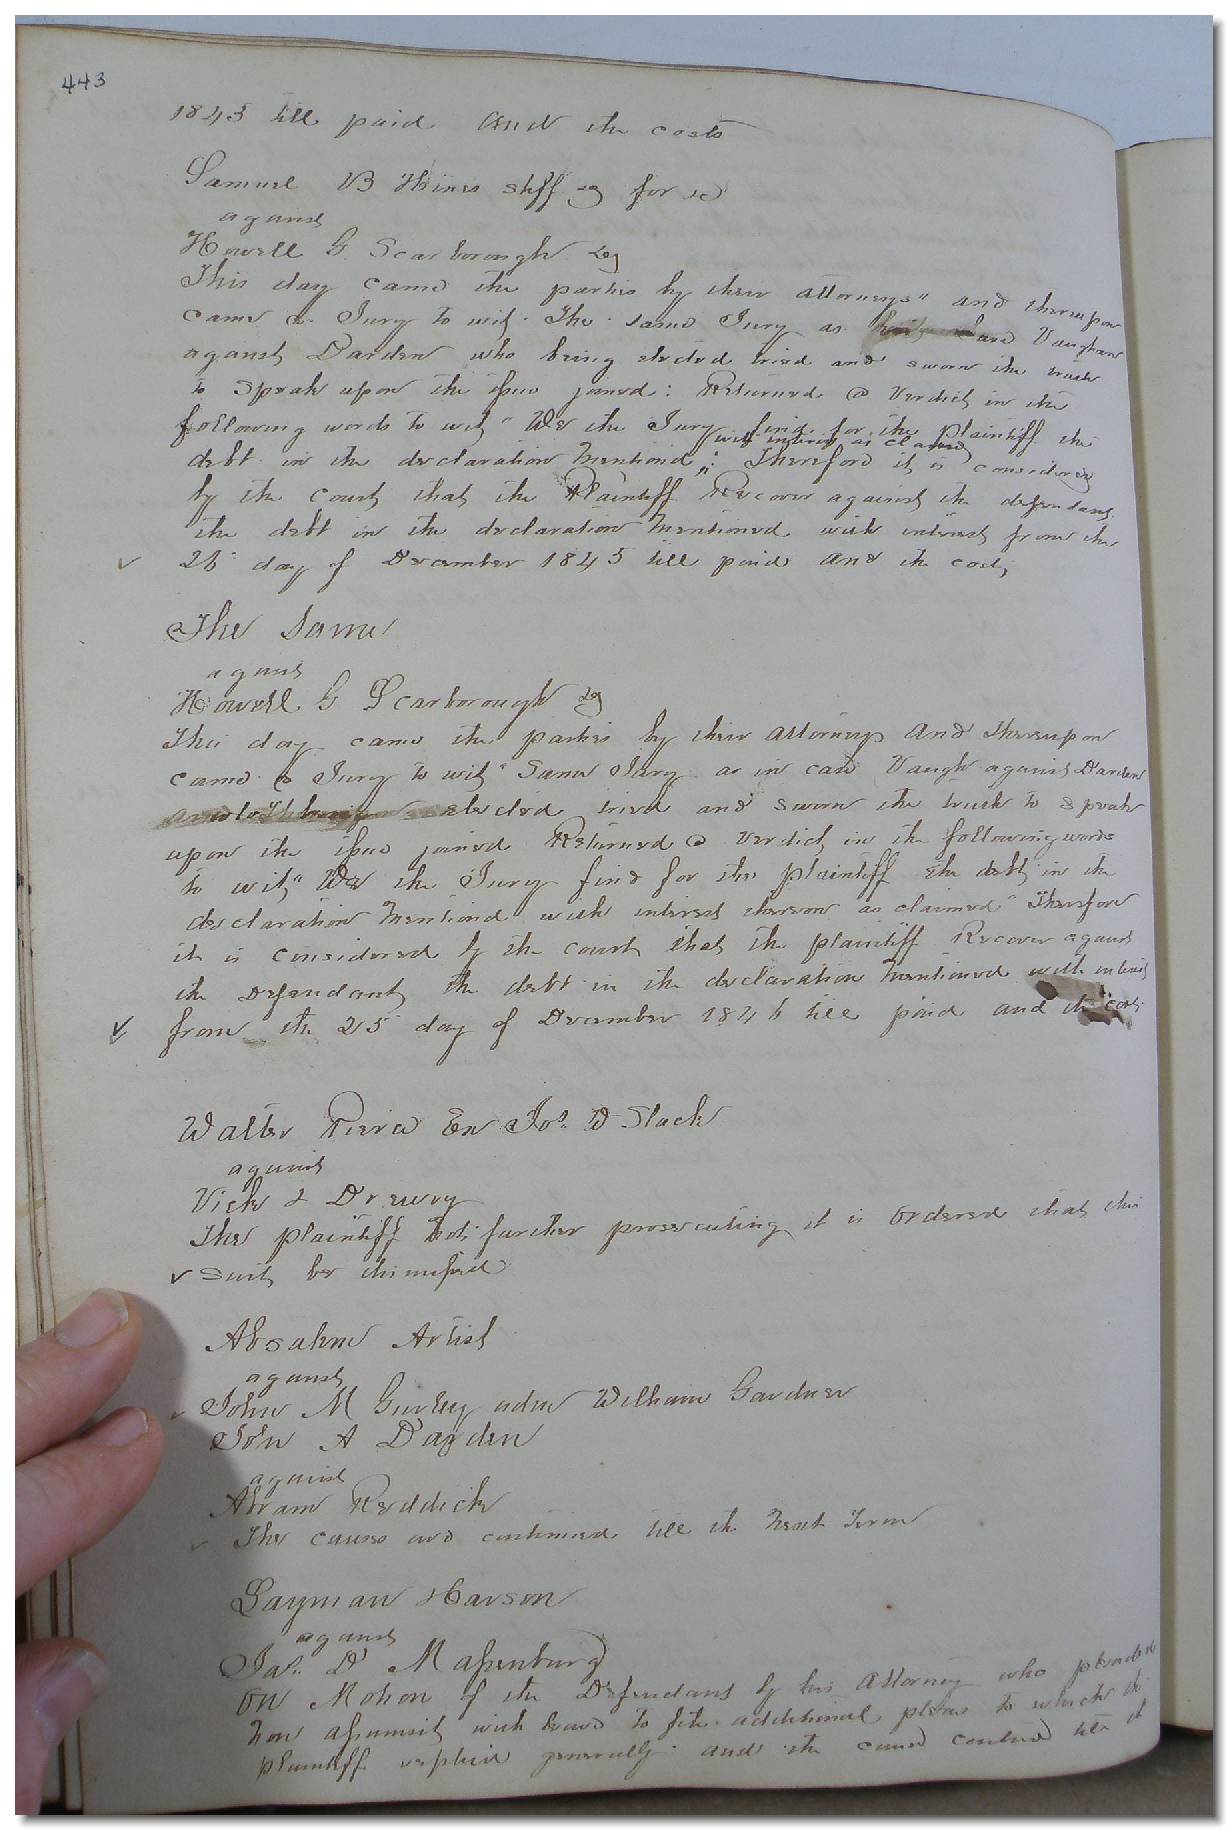 443
1845 till paid and the costs
Samuel B Hines shff &c for &c
against
Howell G. Scarborough &c
This day came the parties by their attorneys" and thereupon
came a Jury to wit. The same Jury as case Vaughan
against Darden who being elected tried and sworn the truth
to Speak upon the issue joined: Returned a Verdict in the
following words to wit" We the Jury find for the plaintiff the
with interest as claimed
debt in the declaration mentiond": Therefore it is considered
by the court that the Plaintiff Recover against the defendant
the debt in the declaration mentioned with interest from the
✓ 26 day of December 1845 till paid and the costs
The Same
against
Howell G Scarborough &c
This day came the parties by their attorneys and thereupon
came a Jury to wit" Same Jury as in case Vaughn against Darden
elected tried and sworn the truth to speak
upon the issue joined Returned a verdict in the following words
to wit" We the Jury find for the plaintiff the debt in the
declaration mentiond with interest thereon as claimed" Therefore
it is considered by the court that the plaintiff Recover against
the Defendant the debt in the declaration mentioned with interest
✓ from the 25 day of December 1846 till paid and the costs
Walter Pierce Exr Jos. D Slack
against
Vick & Drewry
The plaintiff not further prosecuting it is Ordered that this
✓ Suit be dismissed
Absalom Artist
against
✓ John M Gurley adm William Gardner
John A Darden
against
Abram Reddick
✓ The causes are continued till the next Term
Layman Harson
against
Jas. D Massenburg
On Motion of the Defendant by his Attorney who pleaded
non assumsit with leave to file additional pleas to which the
plaintiff replied generally and the caused contined till the